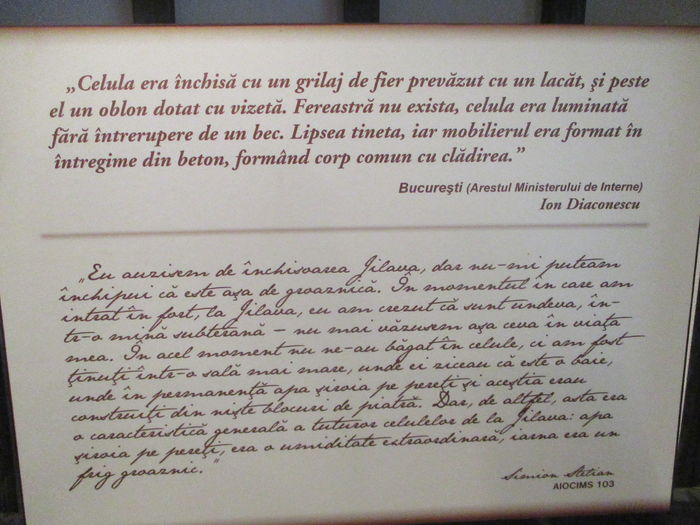 „Celula era închisă cu un grilaj de fier prevăzut cu un lacăt, şi peste
el un oblon dotat cu vizetă. Fereastră nu exista, celula era luminată
fără întrerupere de un bec. Lipsea tineta, iar mobilierul era format în
întregime din beton, formând corp comun cu clădirea.”
Bucureşti (Arestul Ministerului de Interne)
Ion Diaconescu
„Eu auzisem de închisoarea Jilava, dar nu-mi puteam
închipui că este aşa de groaznică. În momentul în care am
intrat în fort, la Jilava, eu am crezut că sunt undeva, în-
tr-o mină subterană – nu mai văzusem aşa ceva în viaţa
mea. În acel moment nu ne-au băgat în celule, ci am fost
ţinuţi într-o sală mai mare, unde ei ziceau că este o baie,
unde în permanenţă apa şiroia pe pereţi şi aceştia erau
construiţi din nişte blocuri de piatră. Dar, de altfel, asta era
o caracteristică generală a tuturor celulelor de la Jilava: apa
şiroia pe pereţi, era o umiditate extraordinară, iarna era un
frig groaznic.”
Simion Stetian
AIOCIMS 103